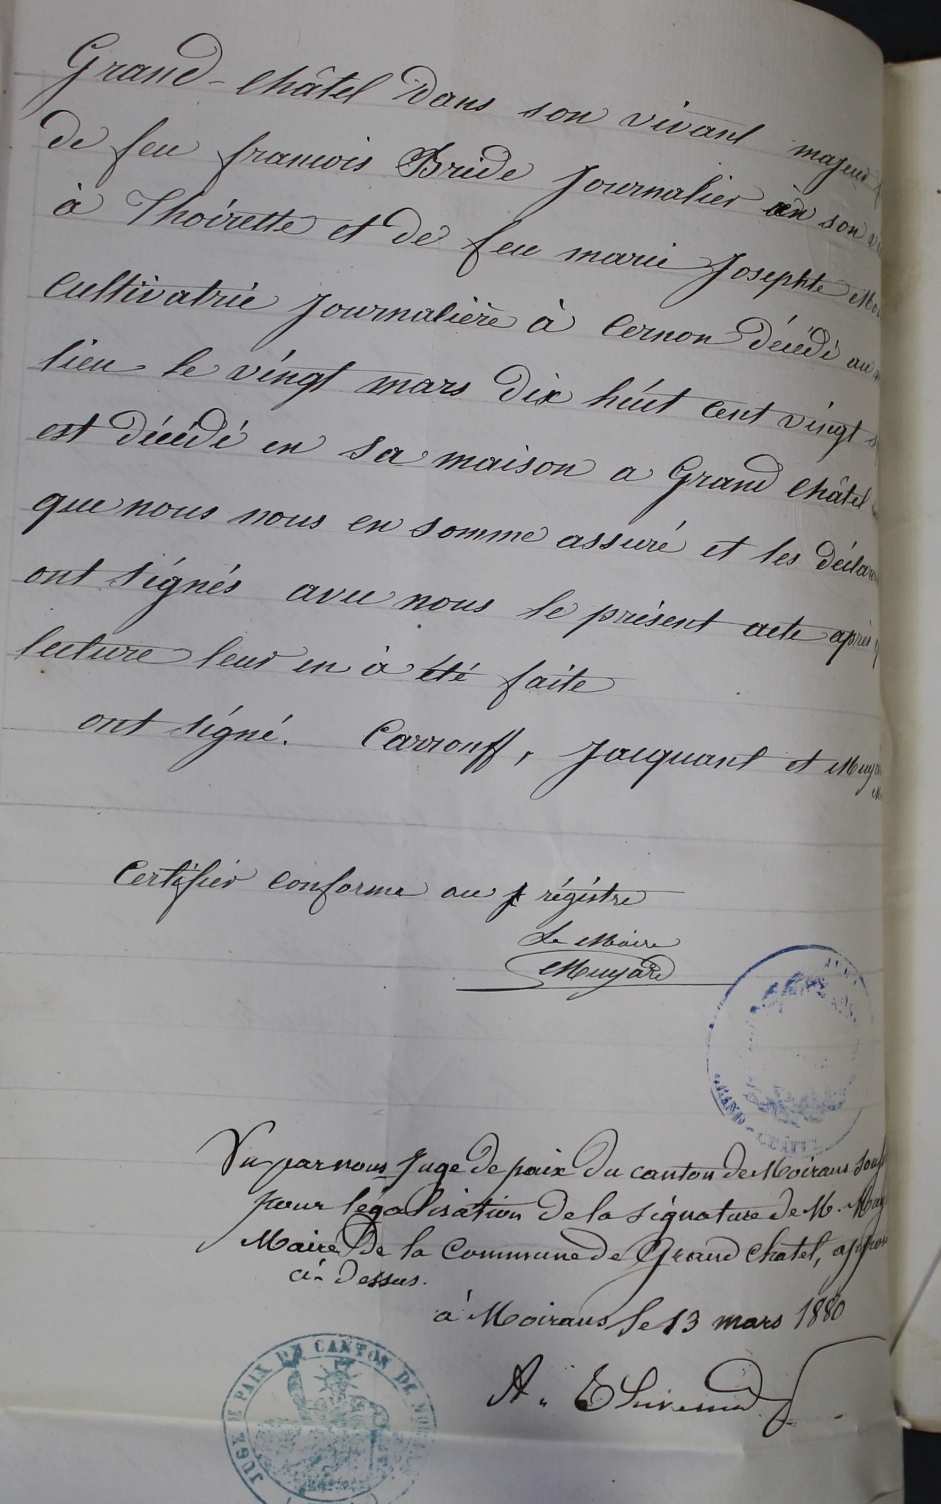 Grand-Châtel Dans son vivant majeur
de feu francois Bride Journalier en son
à Thoirette et de feu marie Josephte
Cultivatrie Journalière à Cernon décédé au
lieu le vingt mars dix huit cent vingt
est décédé en sa maison a Grand Châtel
que nous nous en somme assuré et les
ont signés avec nous le présent acte après
lecture leur en à été faite
ont signé. Carronff, Jacquant et
Certifier conforme au régistre
Le Maire
Muyard
GRAND-CHATEL
Vu par nous Juge de paix Du canton de Moirans
pour légalisation de la signature de M.
Maire de la Commune de Grand Chatel,
ci-Dessus.
à Moirans le 13 mars 1880
A.
JUGE DE PAIX DU CANTON DE